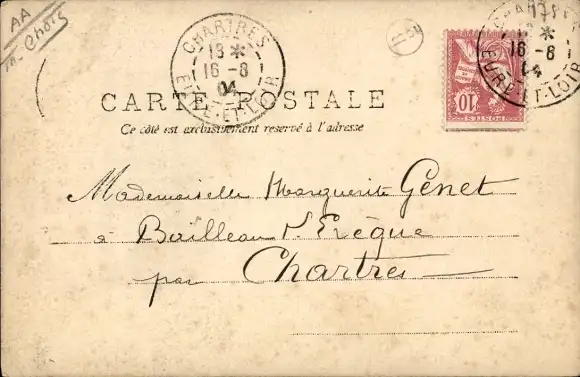 AA
CHARTRES
18 *
16 - 8
04
EURE-ET-LOIR
CHARTRES
*
16 - 8
04
EURE-ET-LOIR
10
POSTES
CARTE POSTALE
Ce côté est exclusivement reservé à l'adresse
Mademoiselle Marguerite Genet
à Bailleau l'Evêque
par Chartres